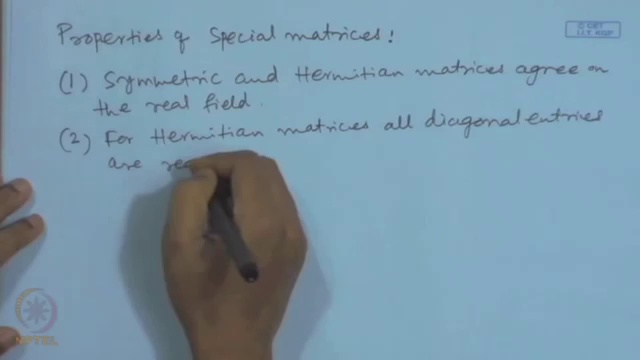 Properties of Special matrices:
© CET
I.I.T. KGP
(1) Symmetric and Hermitian matrices agree on
the real field.
(2) For Hermitian matrices all diagonal entries
are rea
NPTEL